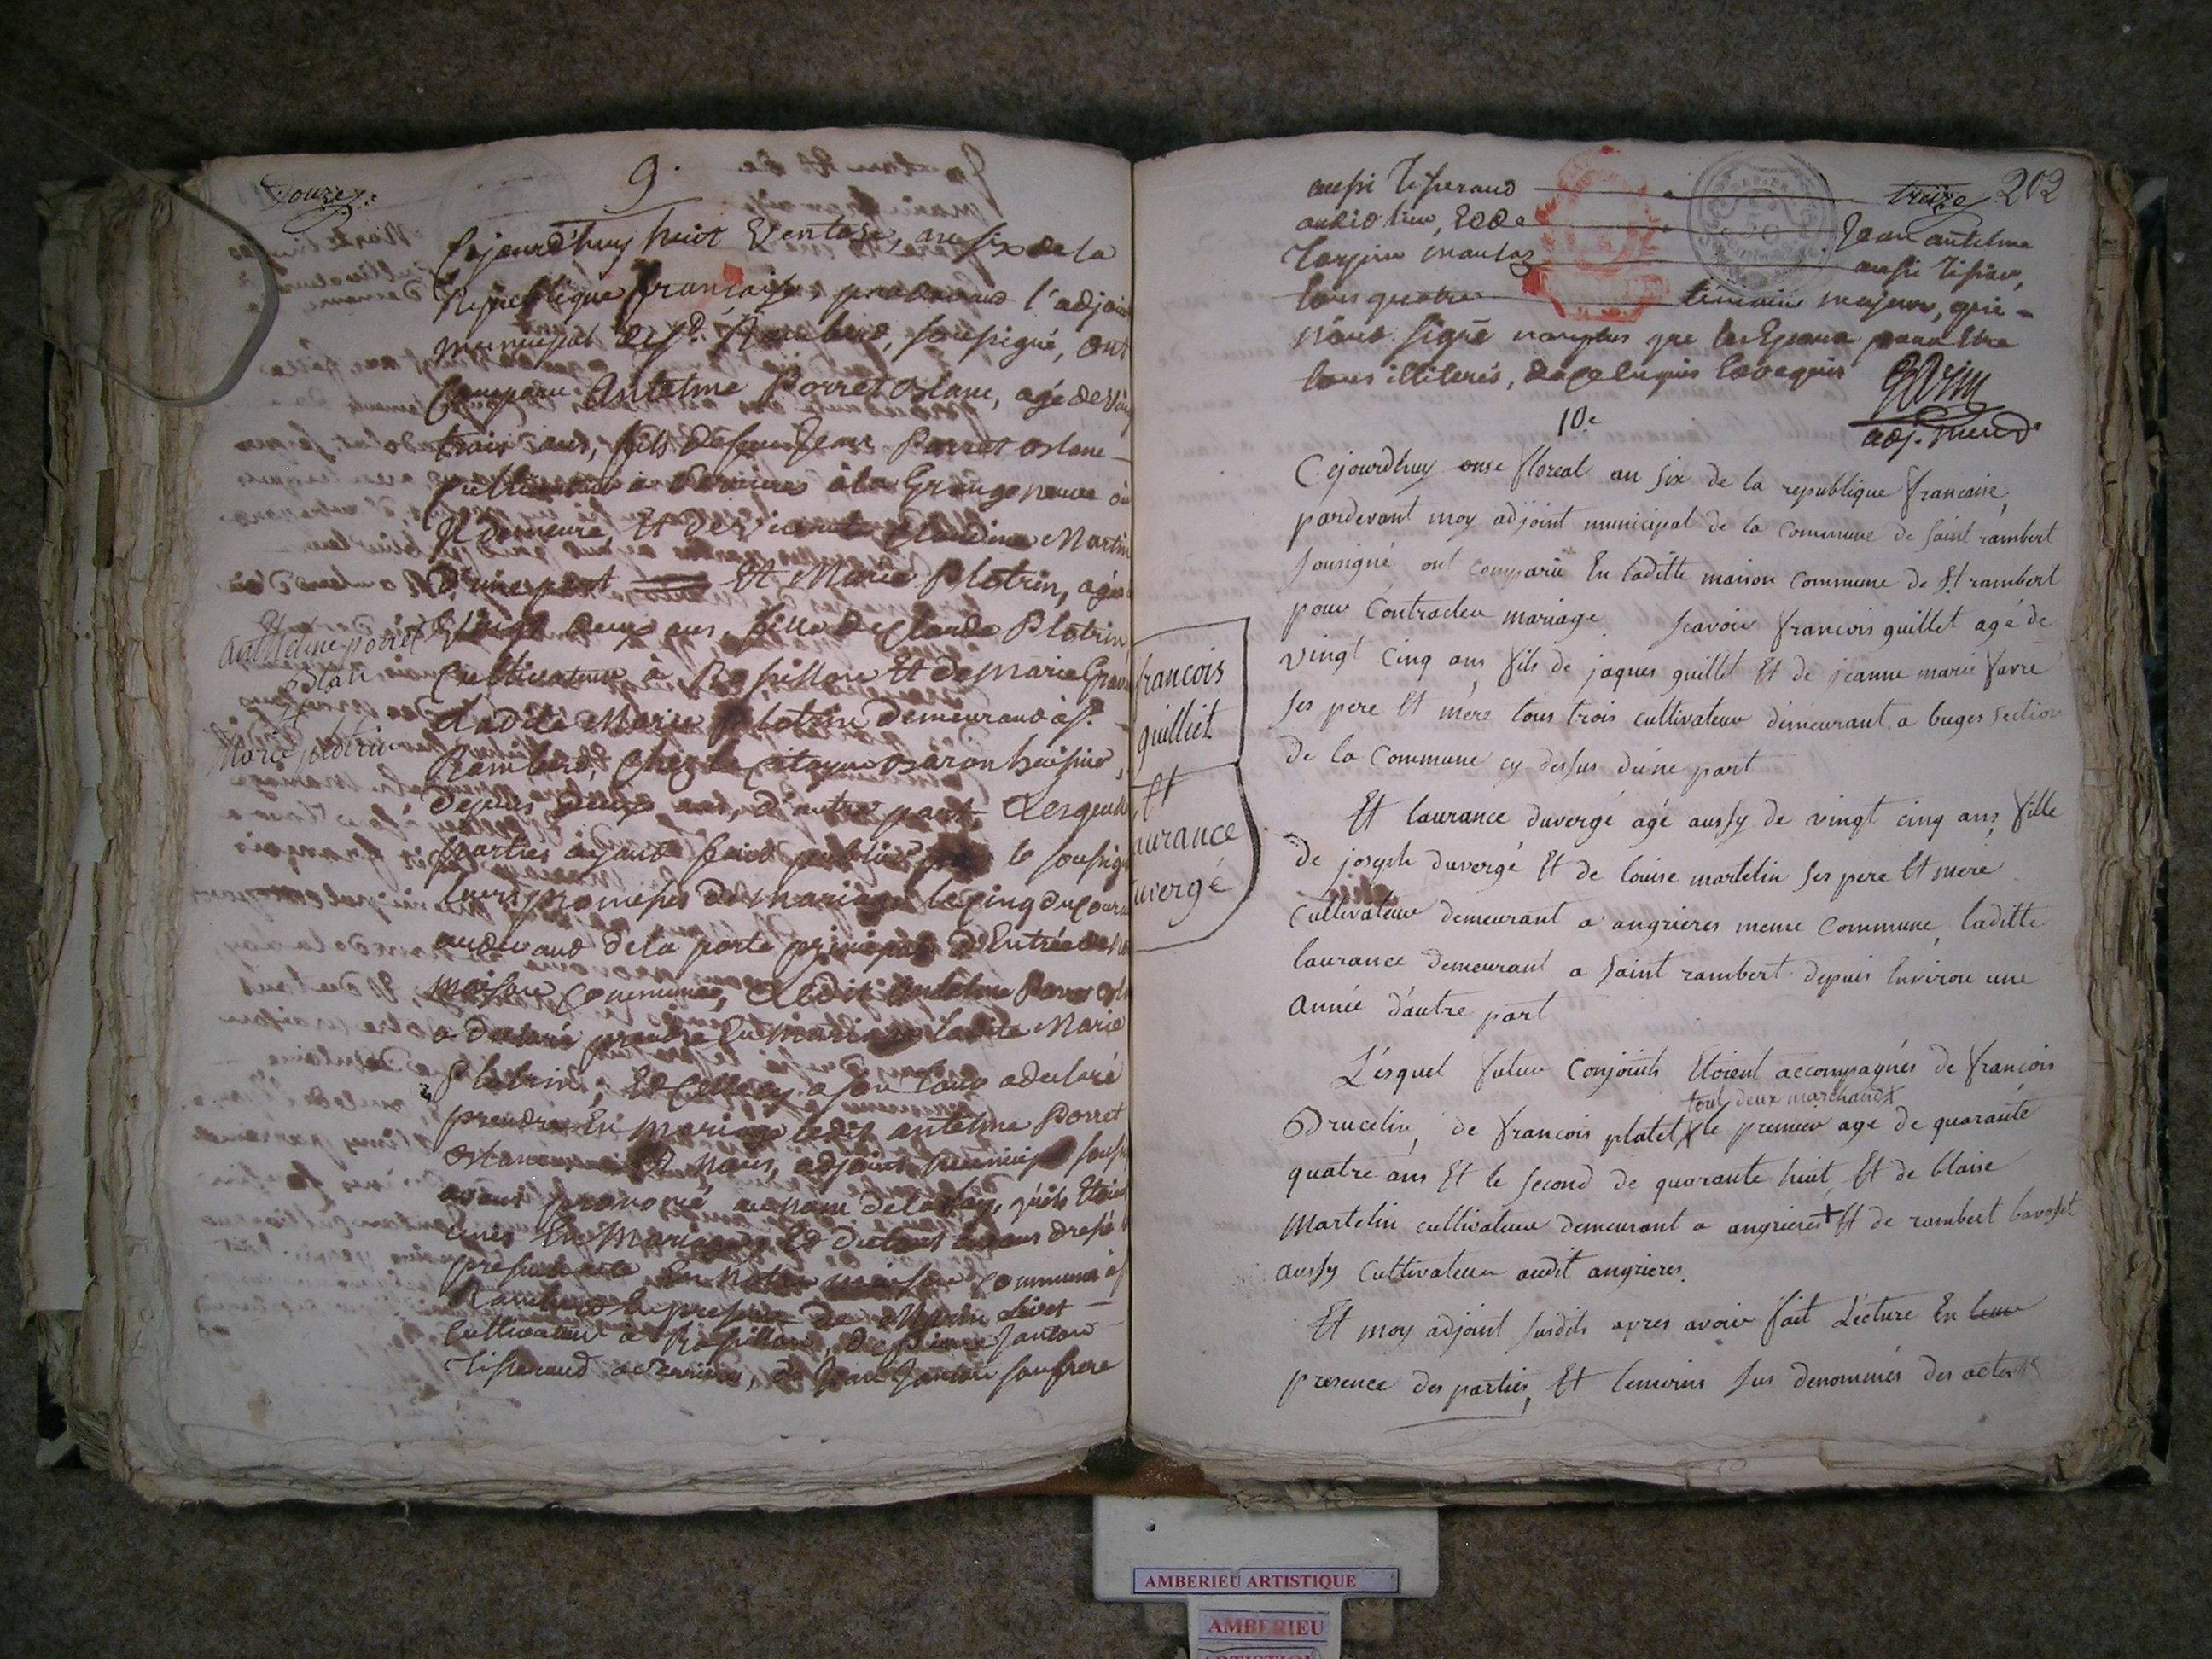 Douze
9.
Cejourd'huy huit Ventose, an six de la
République française, pardevant l'adjoint
municipal de St. Rambert, soussigné, ont
Comparu Antelme Porret oslane, agé de Vingt
trois ans, fils de feu Jean Porret oslane
Cultivateur à à la Grange neuve où
Il demeure, Et de Vivante Claudine Martin
D'une part Et Marie Plotrin, agée
Vingt deux ans, fille de Claude Plotrin
Cultivateur à Et de Marie
Ladite Marie Plotrin demeurant à St.
Rambert, Chez le Citoyen huissier,
depuis deux ans, d'autre part Lesquelles
Parties ayant fait publier par le soussigné
leurs promesses de mariage le Cinq du Courant
audevant de la porte principale D'Entrée de
maison Commune, Ledit Antelme Porret
a declaré prendre En mariage ladite Marie
Plotrin, Et Celle cy a son tour a declaré
prendre En mariage ledit antelme Porret
oslane Et Nous, adjoint municipal
ayant prononcé au nom de la Loy, qu'ils Etaient
unis En Mariage, Et du tout avons dressé
present acte En Notre maison Commune à
Rambert En presence de Livet
Cultivateur à de Pierre Jantons
Tisserand de Jean Jantons son frere
anthelme porret
oslane
Et
Marie plotrin
202
treize
aussi Tisserand
audit lieu, Et de Jean antelme
aussi Tissier,
tous quatre témoins majeurs, qui
n'ont signé nonplus que les Epoux pour Etre
tous illiterés, de ce Enquis Et requis
adj. munal
10e
Cejourdhuy onse floreal an six de la republique francaise,
pardevant moy adjoint municipal de la Commune de saint rambert
sousigné ont comparu En laditte maison commune de St rambert
pour Contracter mariage scavoir francois guillet agé de
vingt cinq ans fils de jaques guillet Et de jeanne marie favre
ses pere Et mere tous trois cultivateur demeurant a buges section
de la Commune cy dessus d'une part
francois
guilliet
Et
laurance
duvergé
Et laurance duvergé agé aussy de vingt cinq ans, fille
de joseph duvergé Et de louise martelin ses pere Et mere
Cultivateur demeurant a angrieres meme Commune, laditte
laurance demeurant a saint rambert depuis Environ une
année d'autre part
L'ésquel futur Conjoints Etoient accompagnés de francois
tout deux marchand X
Drucelin, de francois platet X le premier age de quarante
quatre ans Et le second de quarante huit, Et de blaise
Martelin cultivateur demeurant a angrieres + Et de rambert bavoset
aussy Cultivateur audit angrieres.
Et moy adjoint susdits apres avoir fait Lecture En leur
presence des parties, Et temoins sus denommés des actes
AMBERIEU ARTISTIQUE
AMBERIEU
ARTISTIQUE